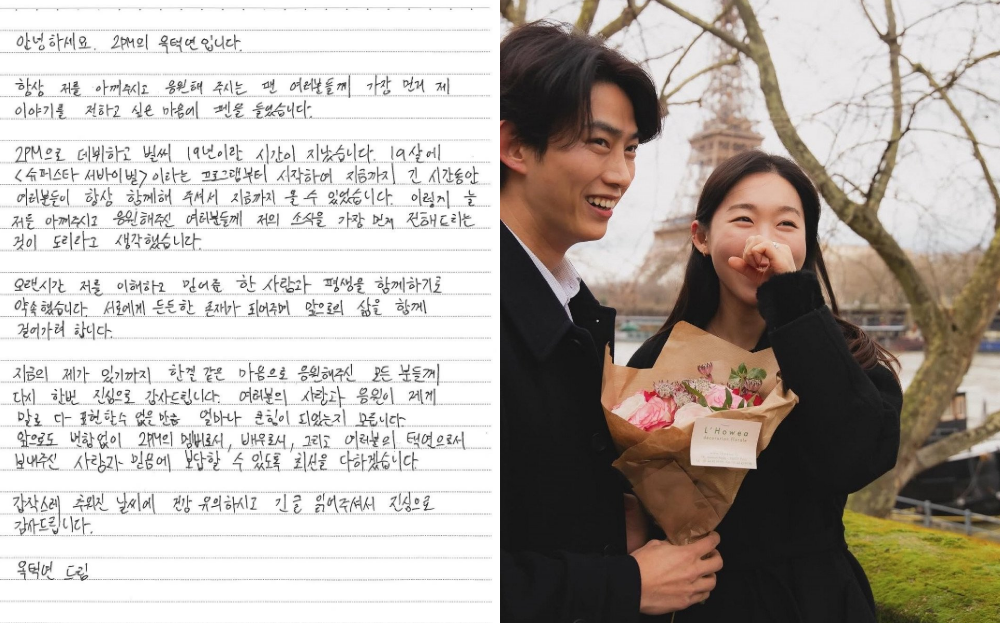 안녕하세요. 2PM의 옥택연입니다.
항상 저를 아껴주시고 응원해 주시는 팬 여러분들께 가장 먼저 제
이야기를 전하고 싶은 마음에 펜을 들었습니다.
2PM으로 데뷔하고 벌써 19년이란 시간이 지났습니다. 19살에
<슈퍼스타 서바이벌>이라는 프로그램부터 시작하여 지금까지 긴 시간동안
여러분들이 항상 함께해 주셔서 지금까지 올 수 있었습니다. 이렇게 늘
저를 아껴주시고 응원해주신 여러분들께 저의 소식을 가장 먼저 전해드리는
것이 도리라고 생각했습니다.
오랜시간 저를 이해하고 믿어준 한 사람과 평생을 함께하기로
약속했습니다. 서로에게 든든한 존재가 되어주며 앞으로의 삶을 함께
걸어가려 합니다.
지금의 제가 있기까지 한결 같은 마음으로 응원해주신 모든 분들께
다시 한번 진심으로 감사드립니다. 여러분의 사랑과 응원이 제게
말로 다 표현할수 없을만큼 얼마나 큰힘이 되었는지 모릅니다.
앞으로도 변함없이 2PM의 멤버로서, 배우로서, 그리고 여러분의 택연으로서
보내주신 사랑과 믿음에 보답할 수 있도록 최선을 다하겠습니다.
갑작스레 추워진 날씨에 건강 유의하시고 긴 글 읽어주셔서 진심으로
감사드립니다.
옥택연 드림
L'Haweo